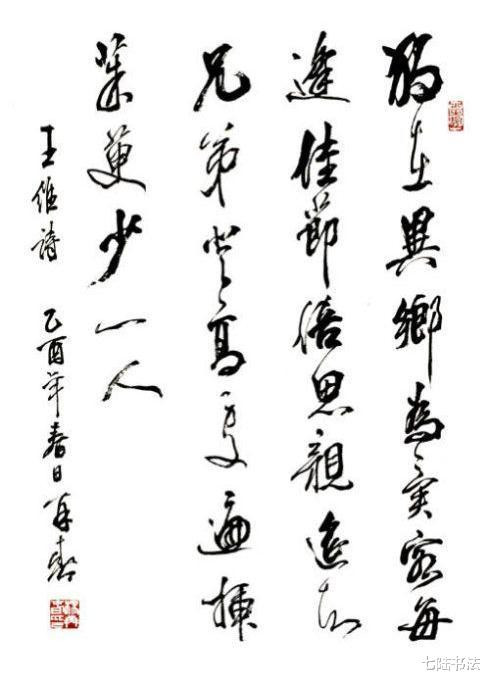 獨在異鄉為異客每
逢佳節倍思親遙知
兄弟登高處遍插
茱萸少一人
王維詩 乙酉年春日
七陆书法